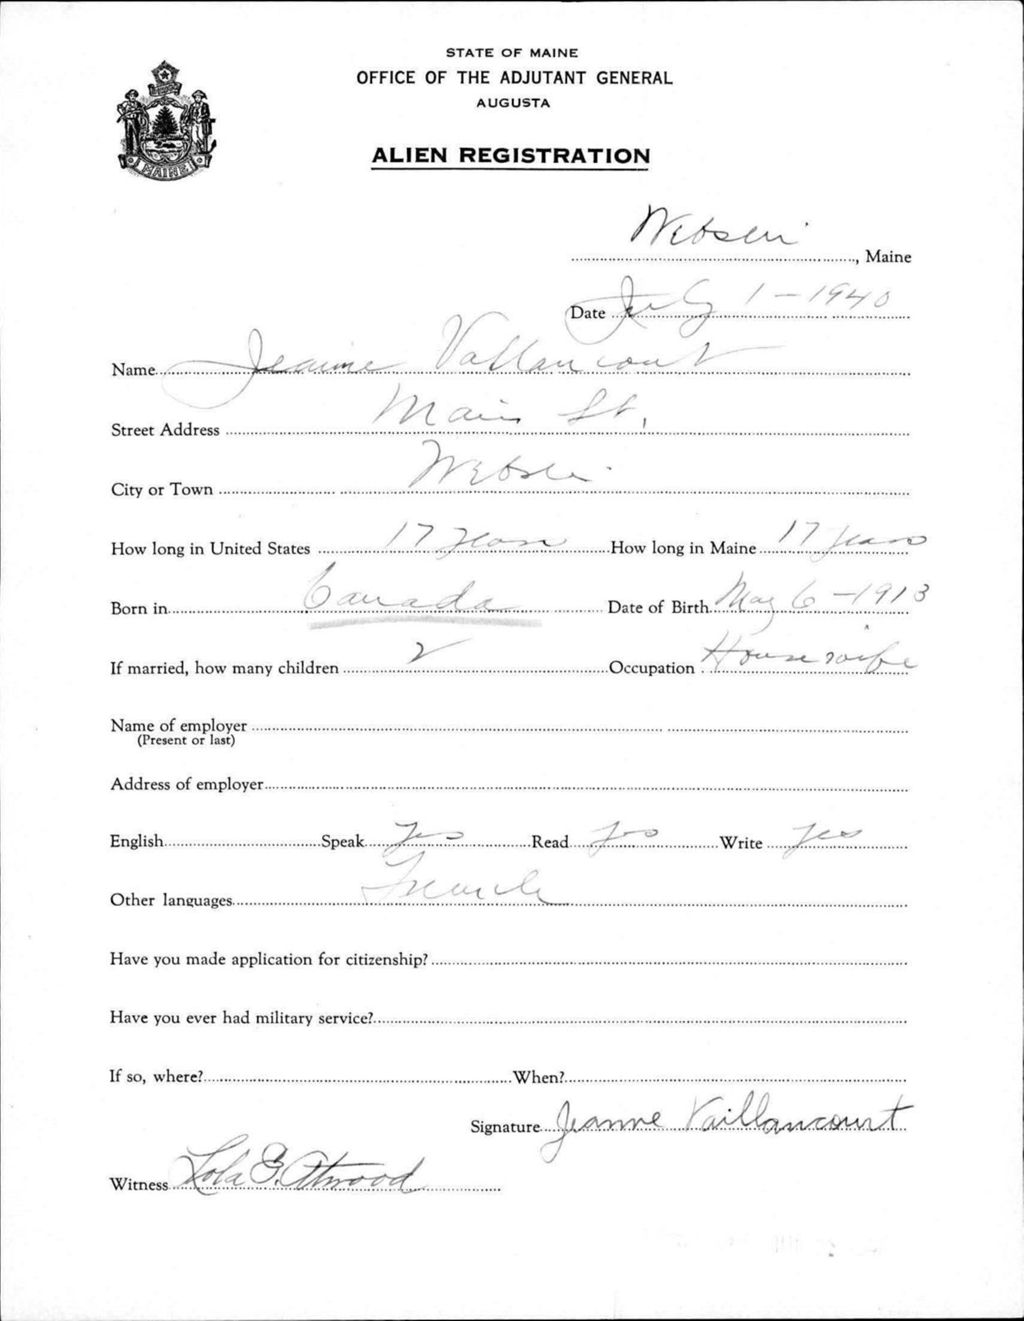 STATE OF MAINE
OFFICE OF THE ADJUTANT GENERAL
AUGUSTA
ALIEN REGISTRATION
MAINE
Webster, Maine
Date July 1-1940
Name Jeanne Vallancourt
Street Address Main St.
City or Town Webster
How long in United States 17 years How long in Maine 17 years
Born in Canada Date of Birth May 6-1913
If married, how many children 2 Occupation Housewife
Name of employer
(Present or last)
Address of employer
English Speak Yes Read Yes Write Yes
Other languages French
Have you made application for citizenship?
Have you ever had military service?
If so, where? When?
Signature Jeanne Vaillancourt
Witness Lola G. Atwood